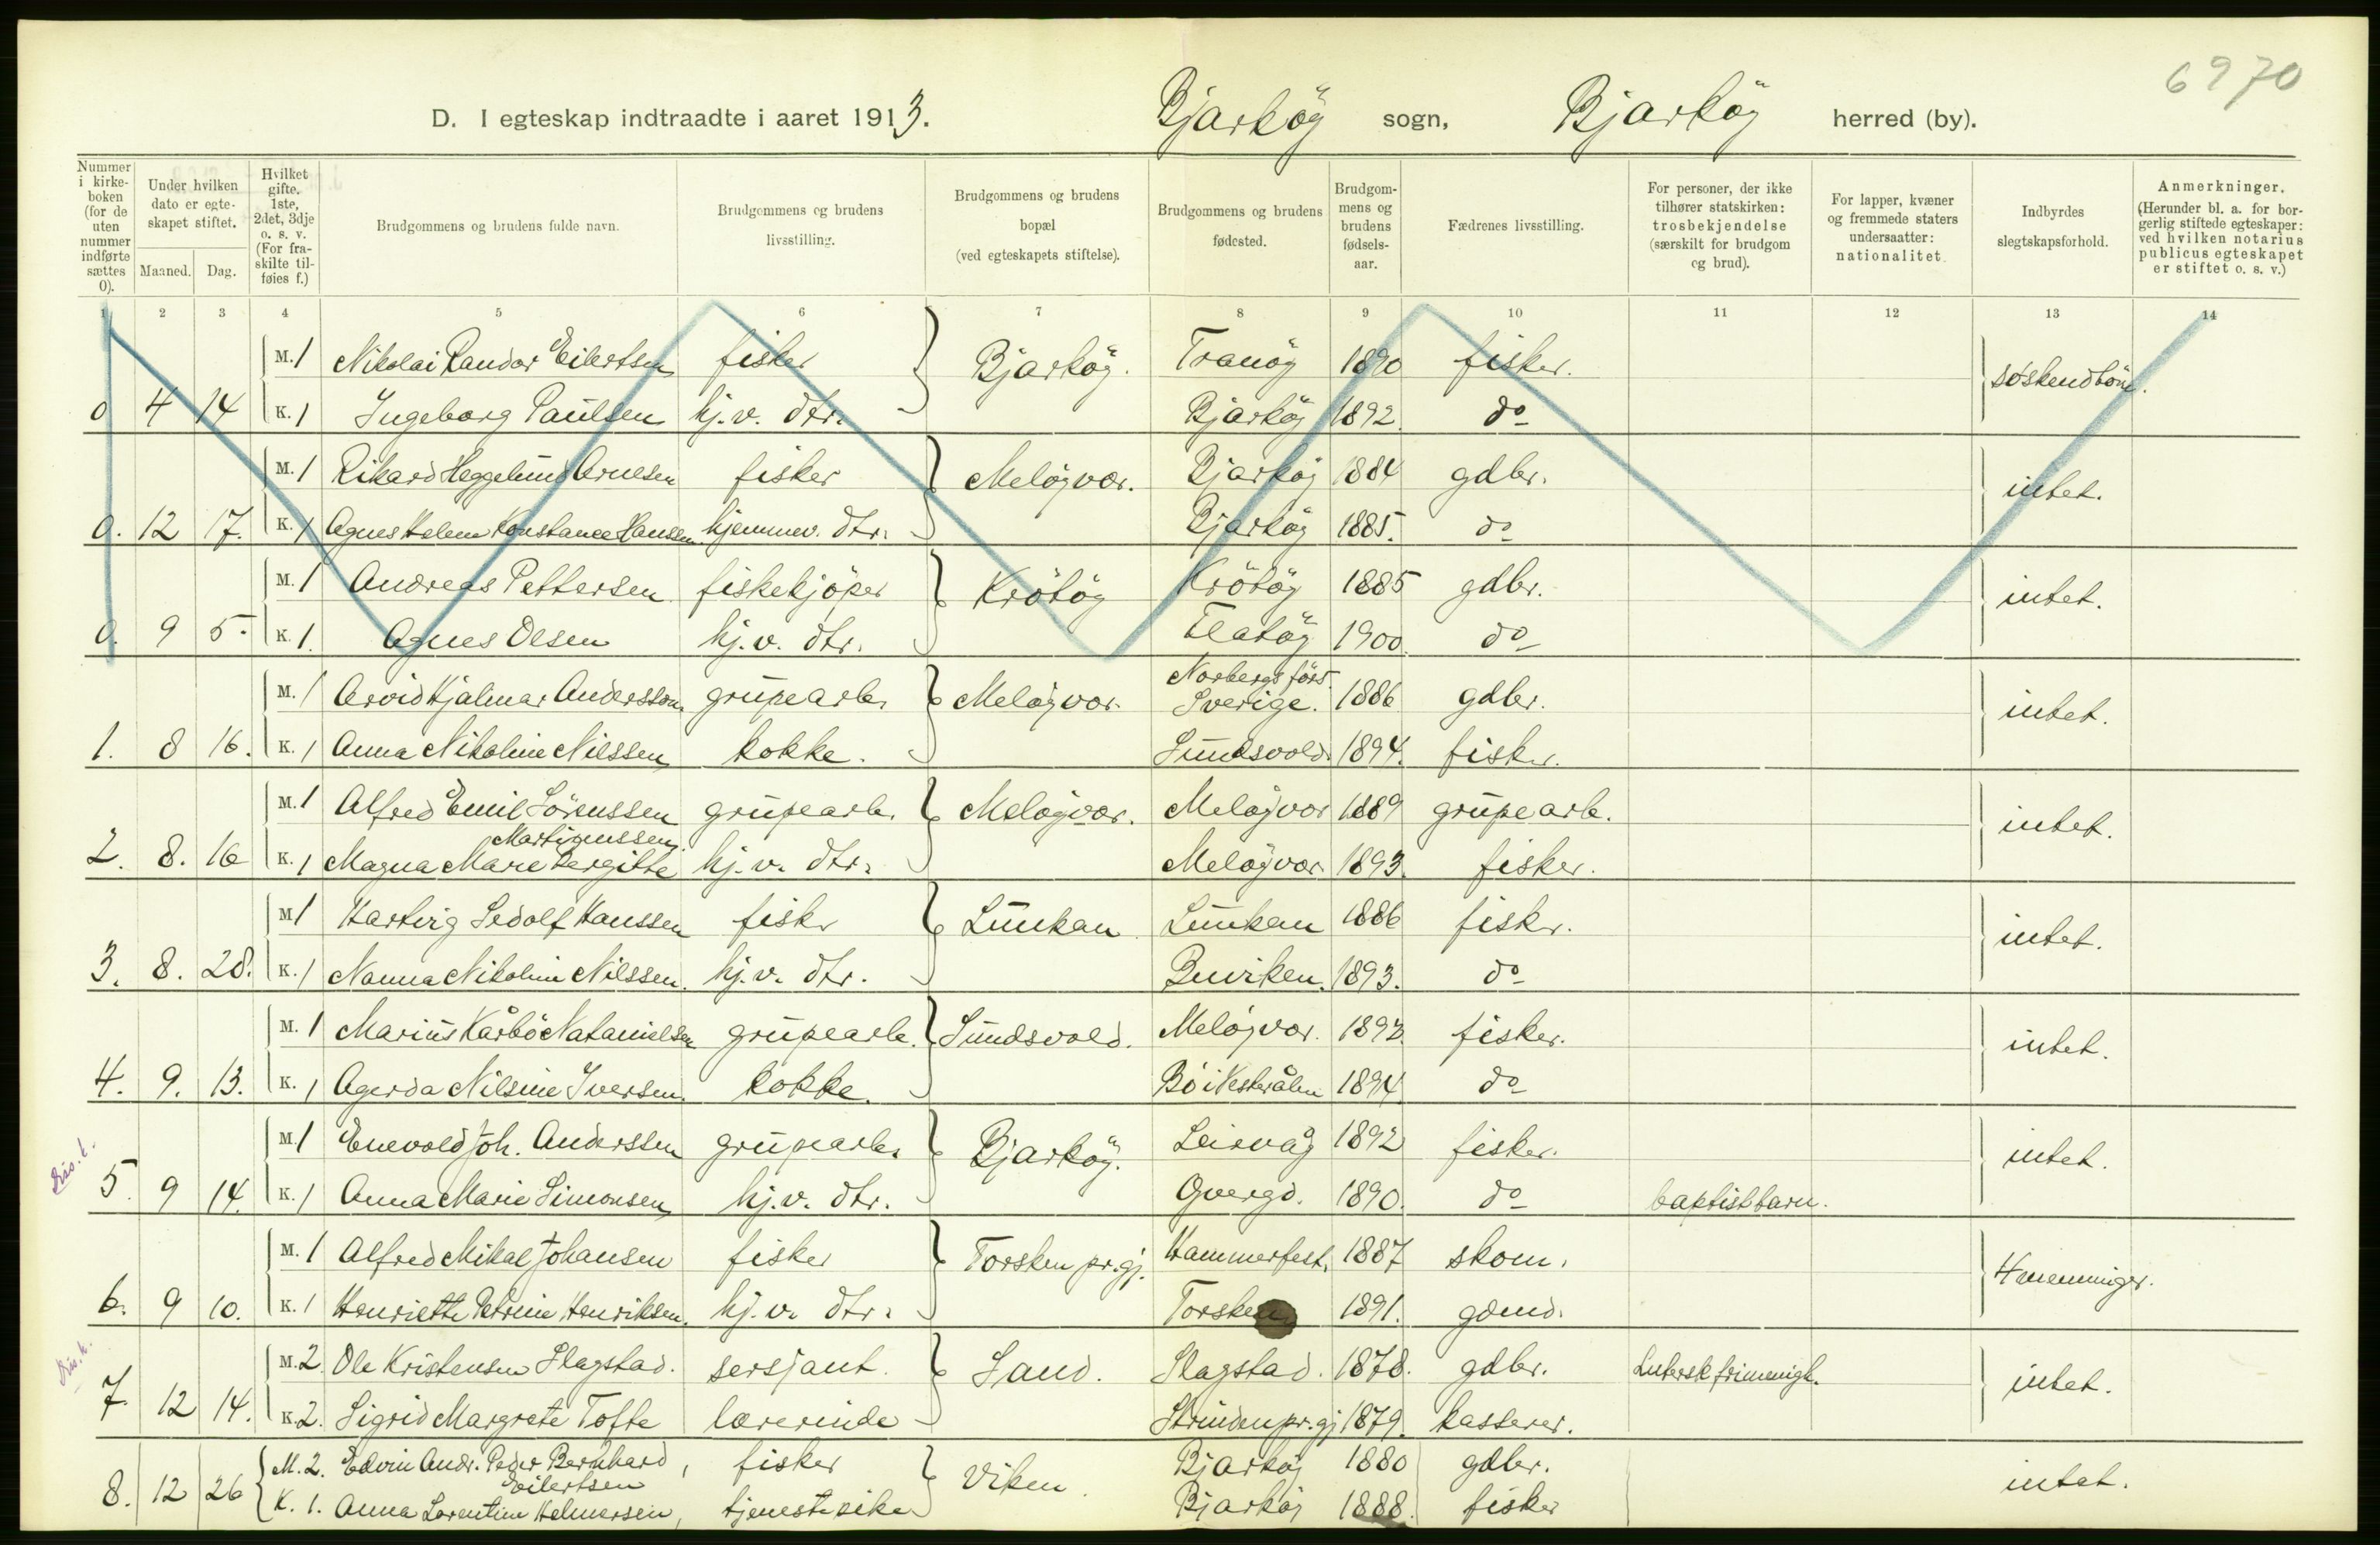 6970
D. I egteskap indtraadte i aaret 1913. Bjarköy sogn, Bjarköy herred (by).
Nummer i kirkeboken (for de uten nummer indførte sættes 0).
Under hvilken dato er egteskapet stiftet.
Maaned. Dag.
Hvilket gifte. 1ste, 2det, 3dje o. s. v. (For fraskilte tilføies f.)
Brudgommens og brudens fulde navn.
Brudgommens og brudens livsstilling.
Brudgommens og brudens bopæl (ved egteskapets stiftelse).
Brudgommens og brudens fødested.
Brudgommens og brudens fødselsaar.
Fædrenes livsstilling.
For personer, der ikke tilhører statskirken: trosbekjendelse (særskilt for brudgom og brud).
For lapper, kvæner og fremmede staters undersaatter: nationalitet.
Indbyrdes slegtskapsforhold.
Anmerkninger. (Herunder bl. a. for borgerlig stiftede egteskaper: ved hvilken notarius publicus egteskapet er stiftet o. s. v.)
1 2 3 4 5 6 7 8 9 10 11 12 13 14
M. 1 Nikolai Randor Eilertsen fisker Bjarköy. Tranöy 1890 fisker. søskendbörn.
0 4 14 K. 1 Ingeborg Paulsen hj. v. dtr. Bjarköy 1892. do
M. 1 Rikard Heggelund Arnesen fisker Melöyvær. Bjarköy 1884 gdbr. intet.
0. 12 17. K. 1 Agnes Helene Konstance Hansen hjemmev. dtr. Bjarköy 1885. do
M. 1 Andreas Pettersen fiskekjöper Krötöy Krötöy 1885 gdbr. intet.
0. 9 5. K. 1. Agnes Olsen hj. v. dtr. Flatöy 1900. do
M. 1 Arvid Hjalmar Andersson grupearb. Melöyvær. Norbergs förs. Sverige. 1886 gdbr. intet.
1. 8 16. K. 1 Anna Nikoline Nilssen kokke. Sundsvold. 1894. fisker.
M. 1 Alfred Emil Sörenssen grupearb. Melöyvær. Melöyvær 1889 grupearb. intet.
Martinussen.
2. 8. 16 K. 1 Magna Marie Bergitte hj. v. dtr. Melöyvær. 1893. fisker.
M. 1 Hartvig Sedolf Hanssen fisker Lunkan Lunkan 1886 fisker. intet.
3. 8. 28. K. 1 Nanna Nikoline Nilssen. hj. v. dtr. Buviken. 1893. do
M. 1 Marius Kårbö Natanielsen grupearb. Sundsvold. Melöyvær. 1893 fisker. intet.
4. 9. 13. K. 1 Agerda Nilsine Iversen. kokke. Bö i Vesterålen 1894 do
M. 1 Enevold Joh. Anderssen grupearb. Bjarköy. Leirvåg 1892 fisker. intet.
Dis. b.
5. 9 14. K. 1 Anna Marie Simonsen hj. v. dtr. Qvergd. 1890. do baptistbarn.
M. 1 Alfred Mikal Johansen fisker Torsken pr.gj. Hammerfest. 1887 skom. 4menninger.
6. 9 10. K. 1 Henriette Petrine Henriksen. hj. v. dtr. Torsken 1891. gdmd.
Dis. b.
M. 2. Ole Kristensen Slagstad. sersjant. Sand. Slagstad. 1878. gdbr. Lutersk frimenigh. intet.
7. 12 14. K. 2. Sigrid Margrete Tofte lærerinde Strinden pr.gj 1879. kasserer.
M. 2. Edvin Andr. Peder Bernhard Eilertsen, fisker Viken. Bjarköy 1880 gdbr. intet.
8. 12 26 K. 1. Anna Lorentine Helmersen, tjenestepike Bjarköy 1888. fisker